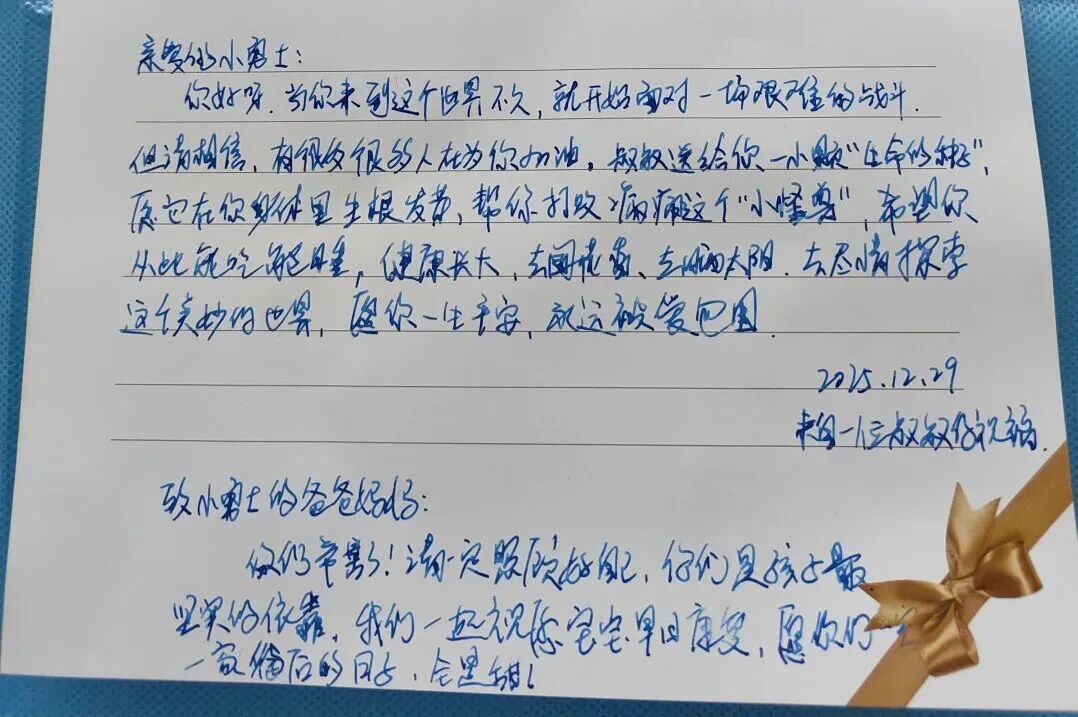 亲爱的小勇士：
你好呀，当你来到这个世界不久，就开始面对一场艰难的战斗.
但请相信，有很多很多人在为你加油。叔叔送给你一小颗“生命的种子”，
愿它在你身体里生根发芽，帮你打败病痛这个“小怪兽”，希望你
从此能吃能睡，健康长大，去闻花香、去晒太阳.去尽情探索
这个美妙的世界，愿你一生平安，永远被爱包围.
2025.12.29
来自一位叔叔的祝福.
致小勇士的爸爸妈妈：
你们辛苦了！请一定照顾好自己，你们是孩子最
坚实的依靠，我们一起祝愿宝宝早日康复，愿你们
一家循后的日子，全是甜！